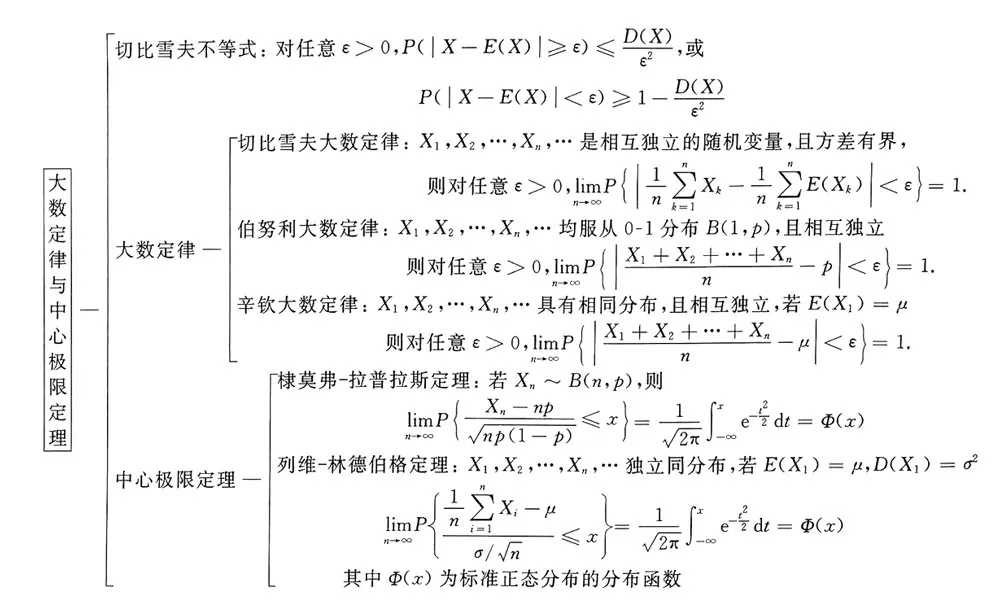 大数定律与中心极限定理
切比雪夫不等式: 对任意 ε > 0, P(|X − E(X)| ⩾ ε) ⩽ D(X)/ε², 或
P(|X − E(X)| < ε) ⩾ 1 − D(X)/ε²
大数定律
切比雪夫大数定律: X₁, X₂, ⋯, Xₙ, ⋯ 是相互独立的随机变量, 且方差有界,
则对任意 ε > 0, lim_{n→∞} P{| 1/n ∑_{k=1}^{n} X_k − 1/n ∑_{k=1}^{n} E(X_k) | < ε} = 1.
伯努利大数定律: X₁, X₂, ⋯, Xₙ, ⋯ 均服从 0-1 分布 B(1, p), 且相互独立
则对任意 ε > 0, lim_{n→∞} P{| (X₁ + X₂ + ⋯ + Xₙ)/n − p | < ε} = 1.
辛钦大数定律: X₁, X₂, ⋯, Xₙ, ⋯ 具有相同分布, 且相互独立, 若 E(X₁) = μ
则对任意 ε > 0, lim_{n→∞} P{| (X₁ + X₂ + ⋯ + Xₙ)/n − μ | < ε} = 1.
中心极限定理
棣莫弗-拉普拉斯定理: 若 Xₙ ~ B(n, p), 则
lim_{n→∞} P{ (Xₙ − np)/√(np(1 − p)) ⩽ x } = 1/√(2π) ∫_{−∞}^{x} e^{−t²/2} dt = Φ(x)
列维-林德伯格定理: X₁, X₂, ⋯, Xₙ, ⋯ 独立同分布, 若 E(X₁) = μ, D(X₁) = σ²
lim_{n→∞} P{ (1/n ∑_{i=1}^{n} X_i − μ)/(σ/√n) ⩽ x } = 1/√(2π) ∫_{−∞}^{x} e^{−t²/2} dt = Φ(x)
其中 Φ(x) 为标准正态分布的分布函数